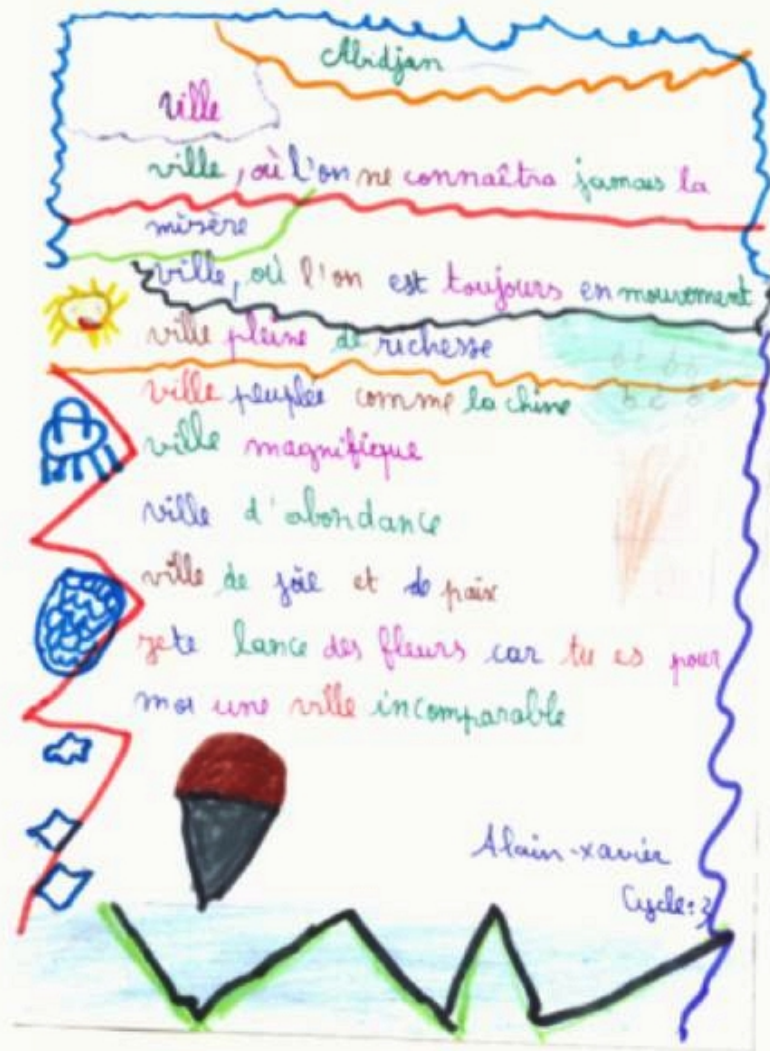 Abidjan
Ville
ville, où l'on ne connaîtra jamais la
misère
ville, où l'on est toujours en mouvement
ville pleine de richesse
ville peuplée comme la chine
ville magnifique
ville d'abondance
ville de joie et de paix
je te lance des fleurs car tu es pour
moi une ville incomparable
Alain-xavier
Cycle: